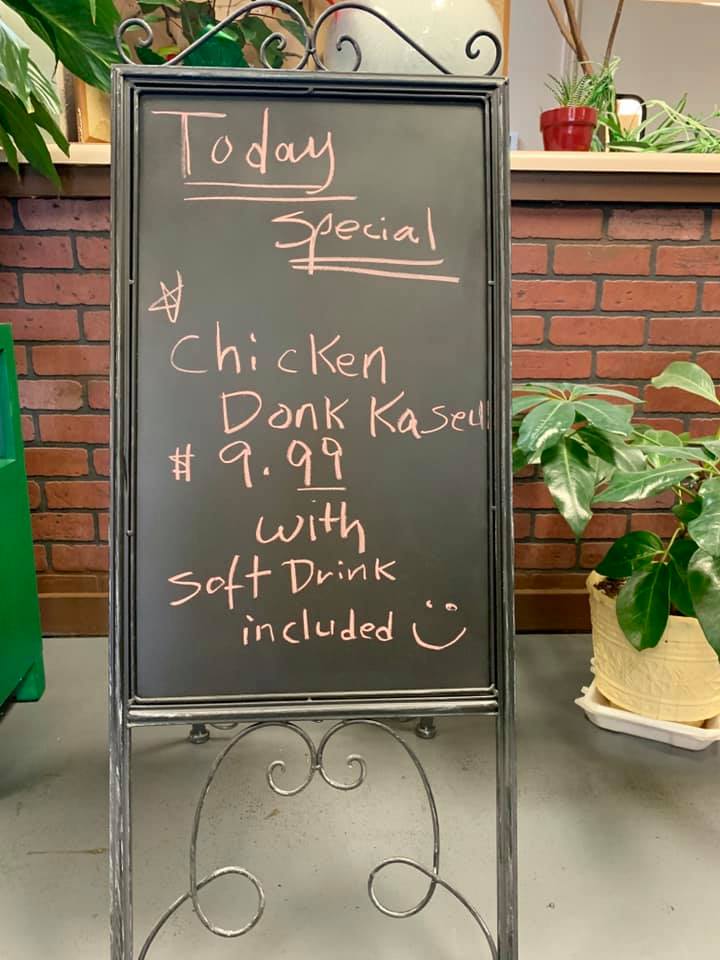 Today
Special
Chicken
Donk Kasew
$ 9.99
with
Soft Drink
included